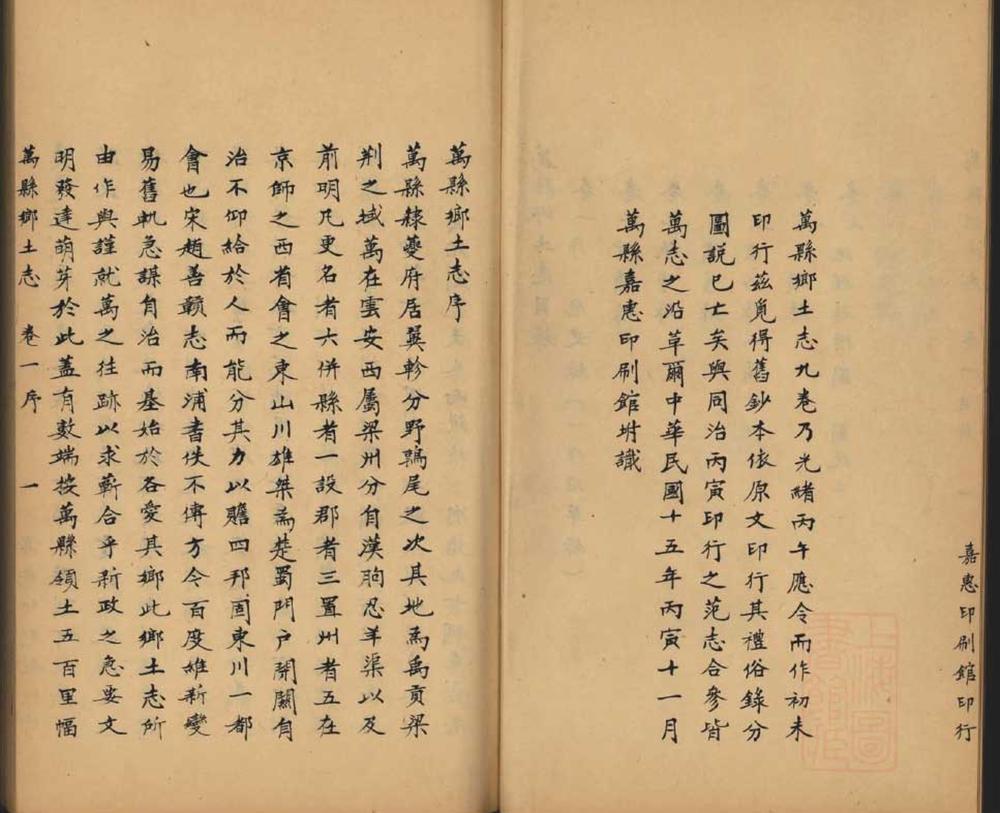 嘉惠印刷館印行
萬縣鄉土志九卷乃光緒丙午應令而作初未
印行茲覓得舊鈔本依原文印行其禮俗錄分
圖說已亡矣與同治丙寅印行之范志合參皆
萬志之沿革爾中華民國十五年丙寅十一月
萬縣嘉惠印刷館坿識
萬縣鄉土志序
萬縣隸夔府居翼軫分野鶉尾之次其地為禹貢梁
荆之域萬在雲安西屬梁州分自漢朐忍羊渠以及
前明凡更名者六併縣者一設郡者三置州者五在
京師之西省會之東山川雄桀為楚蜀門戶開闢自
治不仰給於人而能分其力以贍四邦固東川一都
會也宋趙善贛志南浦書佚不傳方今百度維新變
易舊軌急謀自治而基始於各愛其鄉此鄉土志所
由作與謹就萬之往跡以求蘄合乎新政之急要文
明發達萌芽於此蓋有數端按萬縣領土五百里幅
萬縣鄉土志 卷一序 一